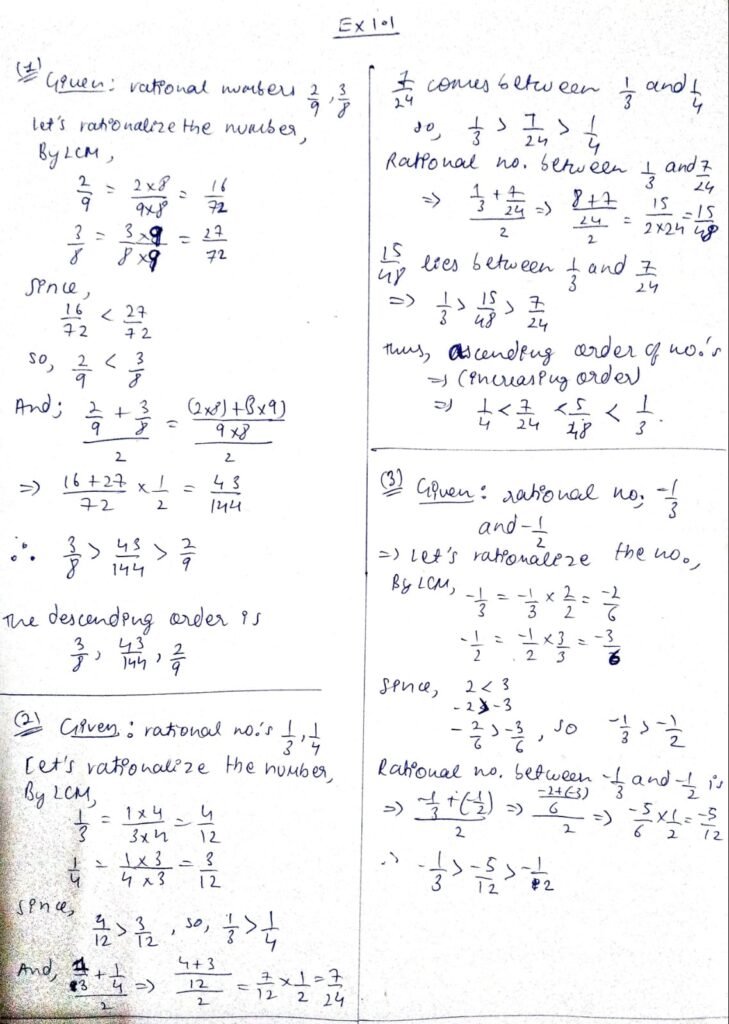 Ex 1.1
(1) Given: rational numbers 2/9, 3/8
let's rationalize the number,
By LCM,
2/9 = 2x8/9x8 = 16/72
3/8 = 3x9/8x9 = 27/72
Since,
16/72 < 27/72
so, 2/9 < 3/8
And; (2/9 + 3/8)/2 = ((2x8)+(3x9)/9x8)/2
=> 16+27/72 x 1/2 = 43/144
∴ 3/8 > 43/144 > 2/9
The descending order is
3/8, 43/144, 2/9
(2) Given: rational no.'s 1/3, 1/4
Let's rationalize the number,
By LCM,
1/3 = 1x4/3x4 = 4/12
1/4 = 1x3/4x3 = 3/12
Since,
4/12 > 3/12, so, 1/3 > 1/4
And, (1/3 + 1/4)/2 => (4+3/12)/2 = 7/12 x 1/2 = 7/24
7/24 comes between 1/3 and 1/4
so, 1/3 > 7/24 > 1/4
Rational no. between 1/3 and 7/24
=> (1/3 + 7/24)/2 => (8+7/24)/2 = 15/2x24 = 15/48
15/48 lies between 1/3 and 7/24
=> 1/3 > 15/48 > 7/24
thus, ascending order of no.'s
=> (increasing order)
=> 1/4 < 7/24 < 5/48 < 1/3.
(3) Given: rational no; -1/3
and -1/2
=> Let's rationalize the no.,
By LCM, -1/3 = -1/3 x 2/2 = -2/6
-1/2 = -1/2 x 3/3 = -3/6
Since, 2 < 3
-2 > -3
-2/6 > -3/6, so -1/3 > -1/2
Rational no. between -1/3 and -1/2 is
=> (-1/3 + (-1/2))/2 => (-2+(-3)/6)/2 => -5/6 x 1/2 = -5/12
∴ -1/3 > -5/12 > -1/2